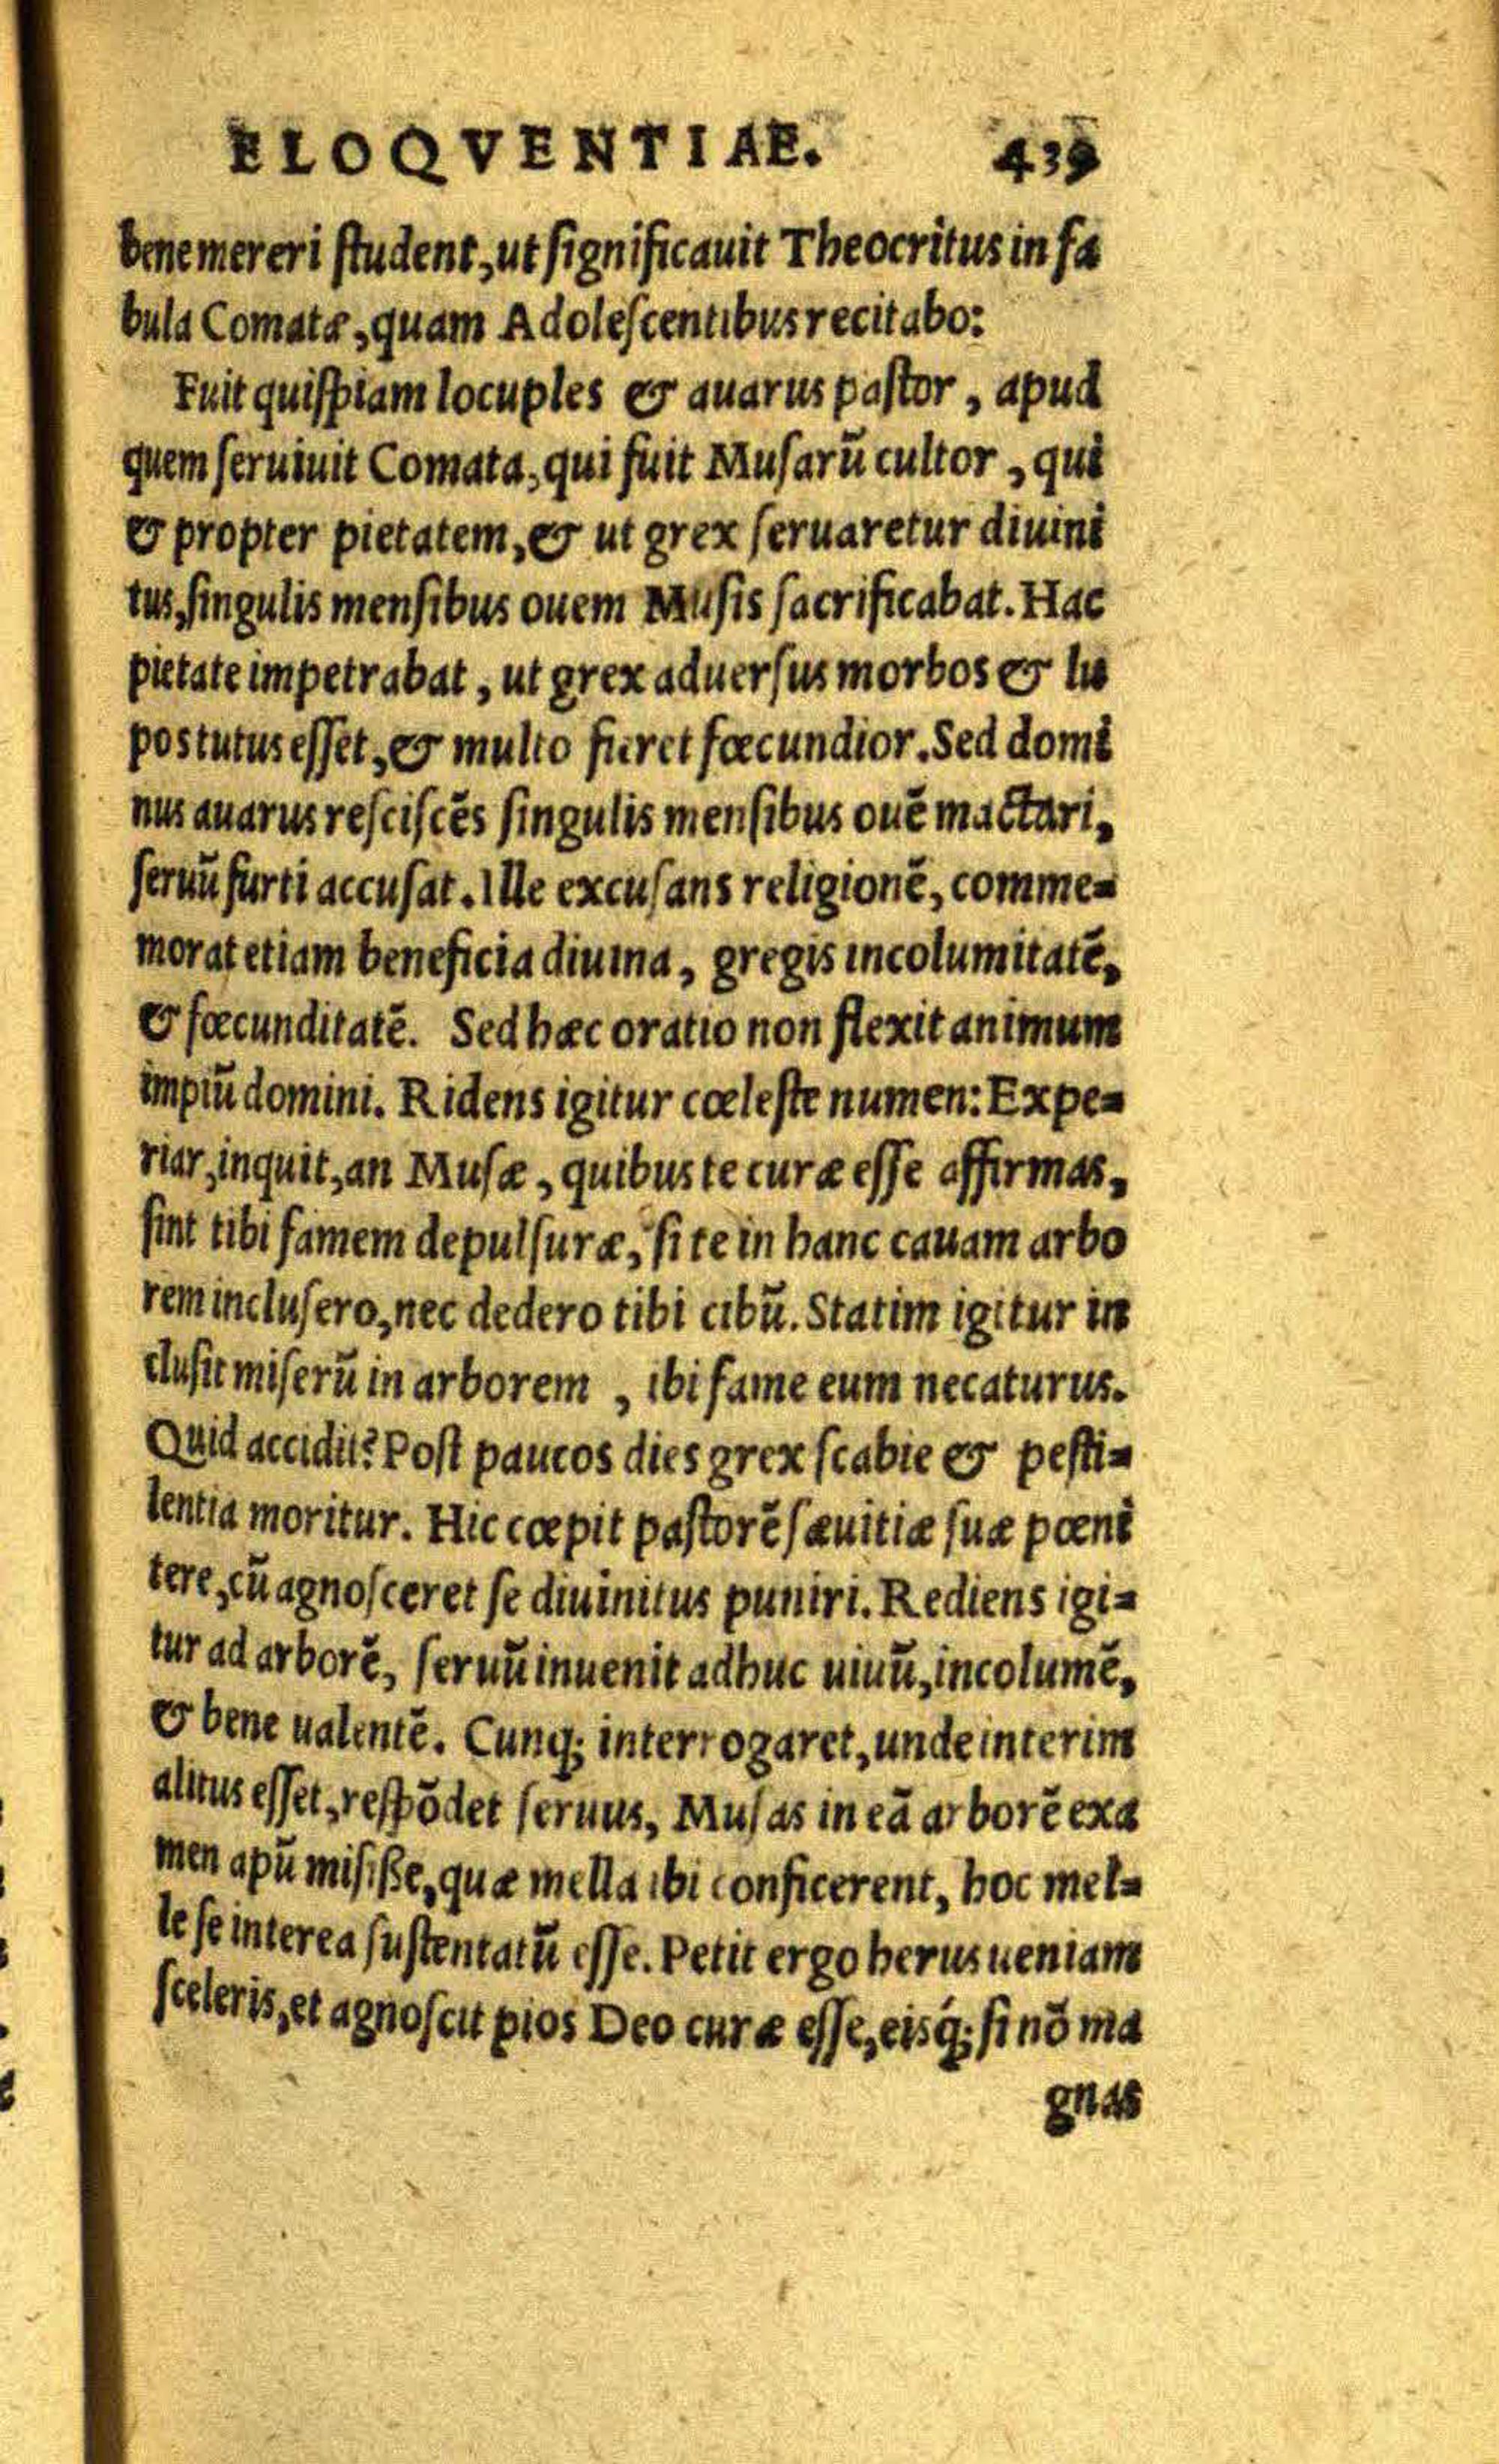 ELOQVENTIAE. 439
bene mereri ſtudent, ut ſignificauit Theocritus in fa
bula Comatæ, quam Adoleſcentibus recitabo:
Fuit quiſpiam locuples & auarus paſtor, apud
quem ſeruiuit Comata, qui fuit Muſarū cultor, qui
& propter pietatem, & ut grex ſeruaretur diuini
tus, ſingulis menſibus ouem Muſis ſacrificabat. Hac
pietate impetrabat, ut grex aduerſus morbos & lu
pos tutus eſſet, & multo fieret fœcundior. Sed domi
nus auarus reſciſcēs ſingulis menſibus ouē mactari,
ſeruū furti accuſat. Ille excuſans religionē, comme-
morat etiam beneficia diuina, gregis incolumitatē,
& fœcunditatē. Sed hæc oratio non flexit animum
impiū domini. Ridens igitur cœleſte numen: Expe-
riar, inquit, an Muſæ, quibus te curæ eſſe affirmas,
ſint tibi famem depulſuræ, ſi te in hanc cauam arbo
rem incluſero, nec dedero tibi cibū. Statim igitur in
cluſit miſerū in arborem, ibi fame eum necaturus.
Quid accidit? Poſt paucos dies grex ſcabie & peſti-
lentia moritur. Hic cœpit paſtorē ſæuitiæ ſuæ pœni
tere, cū agnoſceret ſe diuinitus puniri. Rediens igi-
tur ad arborē, ſeruū inuenit adhuc uiuū, incolumē,
& bene ualentē. Cunq; interrogaret, unde interim
alitus eſſet, reſpōdet ſeruus, Muſas in eā arborē exa
men apū miſiſſe, quæ mella ibi conficerent, hoc mel-
le ſe interea ſuſtentatū eſſe. Petit ergo herus ueniam
ſceleris, et agnoſcit pios Deo curæ eſſe, eisq́; ſi nō ma
gnas